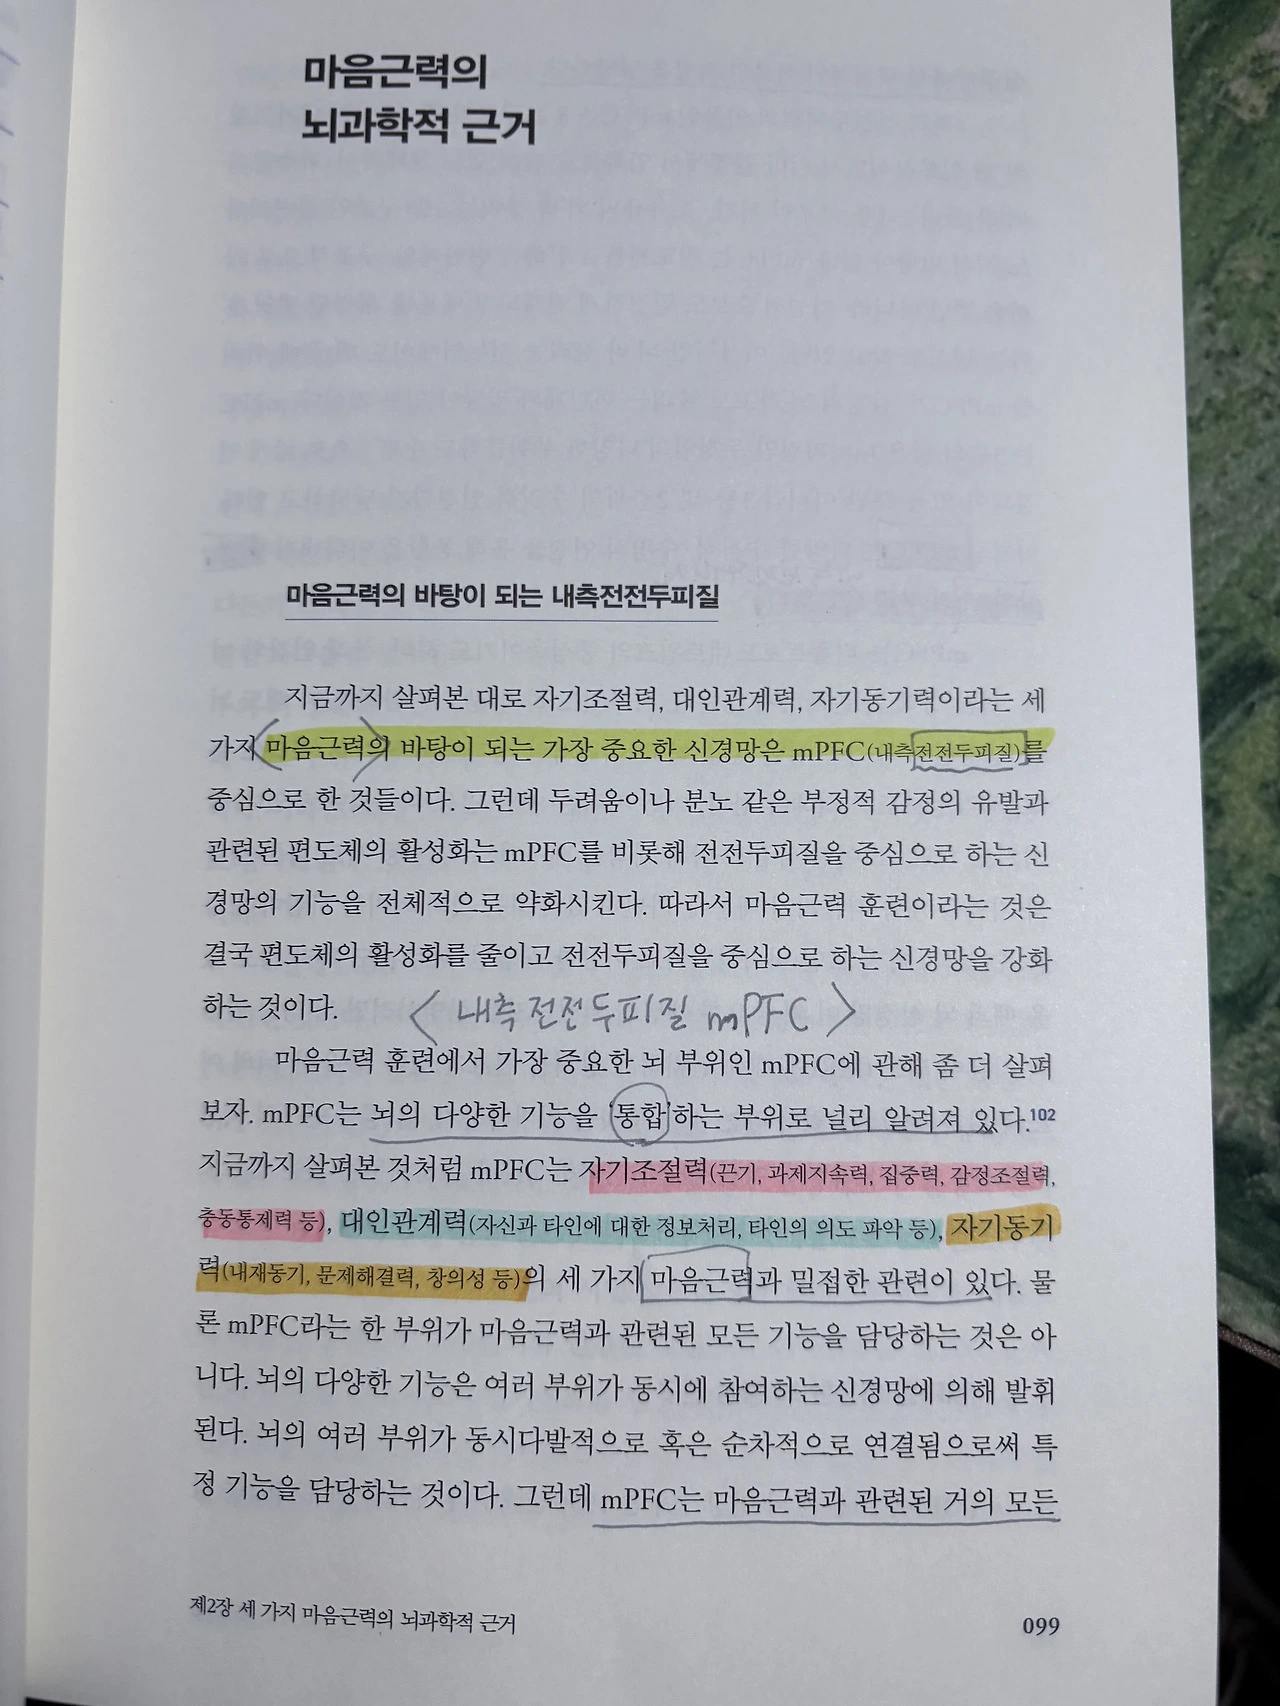 마음근력의
뇌과학적 근거
마음근력의 바탕이 되는 내측전전두피질
지금까지 살펴본 대로 자기조절력, 대인관계력, 자기동기력이라는 세
가지 마음근력의 바탕이 되는 가장 중요한 신경망은 mPFC(내측전전두피질)를
중심으로 한 것들이다. 그런데 두려움이나 분노 같은 부정적 감정의 유발과
관련된 편도체의 활성화는 mPFC를 비롯해 전전두피질을 중심으로 하는 신
경망의 기능을 전체적으로 약화시킨다. 따라서 마음근력 훈련이라는 것은
결국 편도체의 활성화를 줄이고 전전두피질을 중심으로 하는 신경망을 강화
하는 것이다. <내측전전두피질 mPFC>
마음근력 훈련에서 가장 중요한 뇌 부위인 mPFC에 관해 좀 더 살펴
보자. mPFC는 뇌의 다양한 기능을 '통합'하는 부위로 널리 알려져 있다.102
지금까지 살펴본 것처럼 mPFC는 자기조절력(끈기, 과제지속력, 집중력, 감정조절력,
충동통제력 등), 대인관계력(자신과 타인에 대한 정보처리, 타인의 의도 파악 등), 자기동기
력(내재동기, 문제해결력, 창의성 등)의 세 가지 마음근력과 밀접한 관련이 있다. 물
론 mPFC라는 한 부위가 마음근력과 관련된 모든 기능을 담당하는 것은 아
니다. 뇌의 다양한 기능은 여러 부위가 동시에 참여하는 신경망에 의해 발휘
된다. 뇌의 여러 부위가 동시다발적으로 혹은 순차적으로 연결됨으로써 특
정 기능을 담당하는 것이다. 그런데 mPFC는 마음근력과 관련된 거의 모든
제2장 세 가지 마음근력의 뇌과학적 근거
099